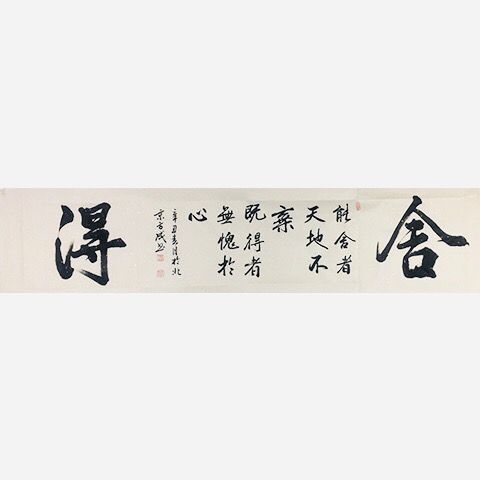 舍
能舍者
天地不
棄
既得者
無愧於
心
辛丑月於北
京
得